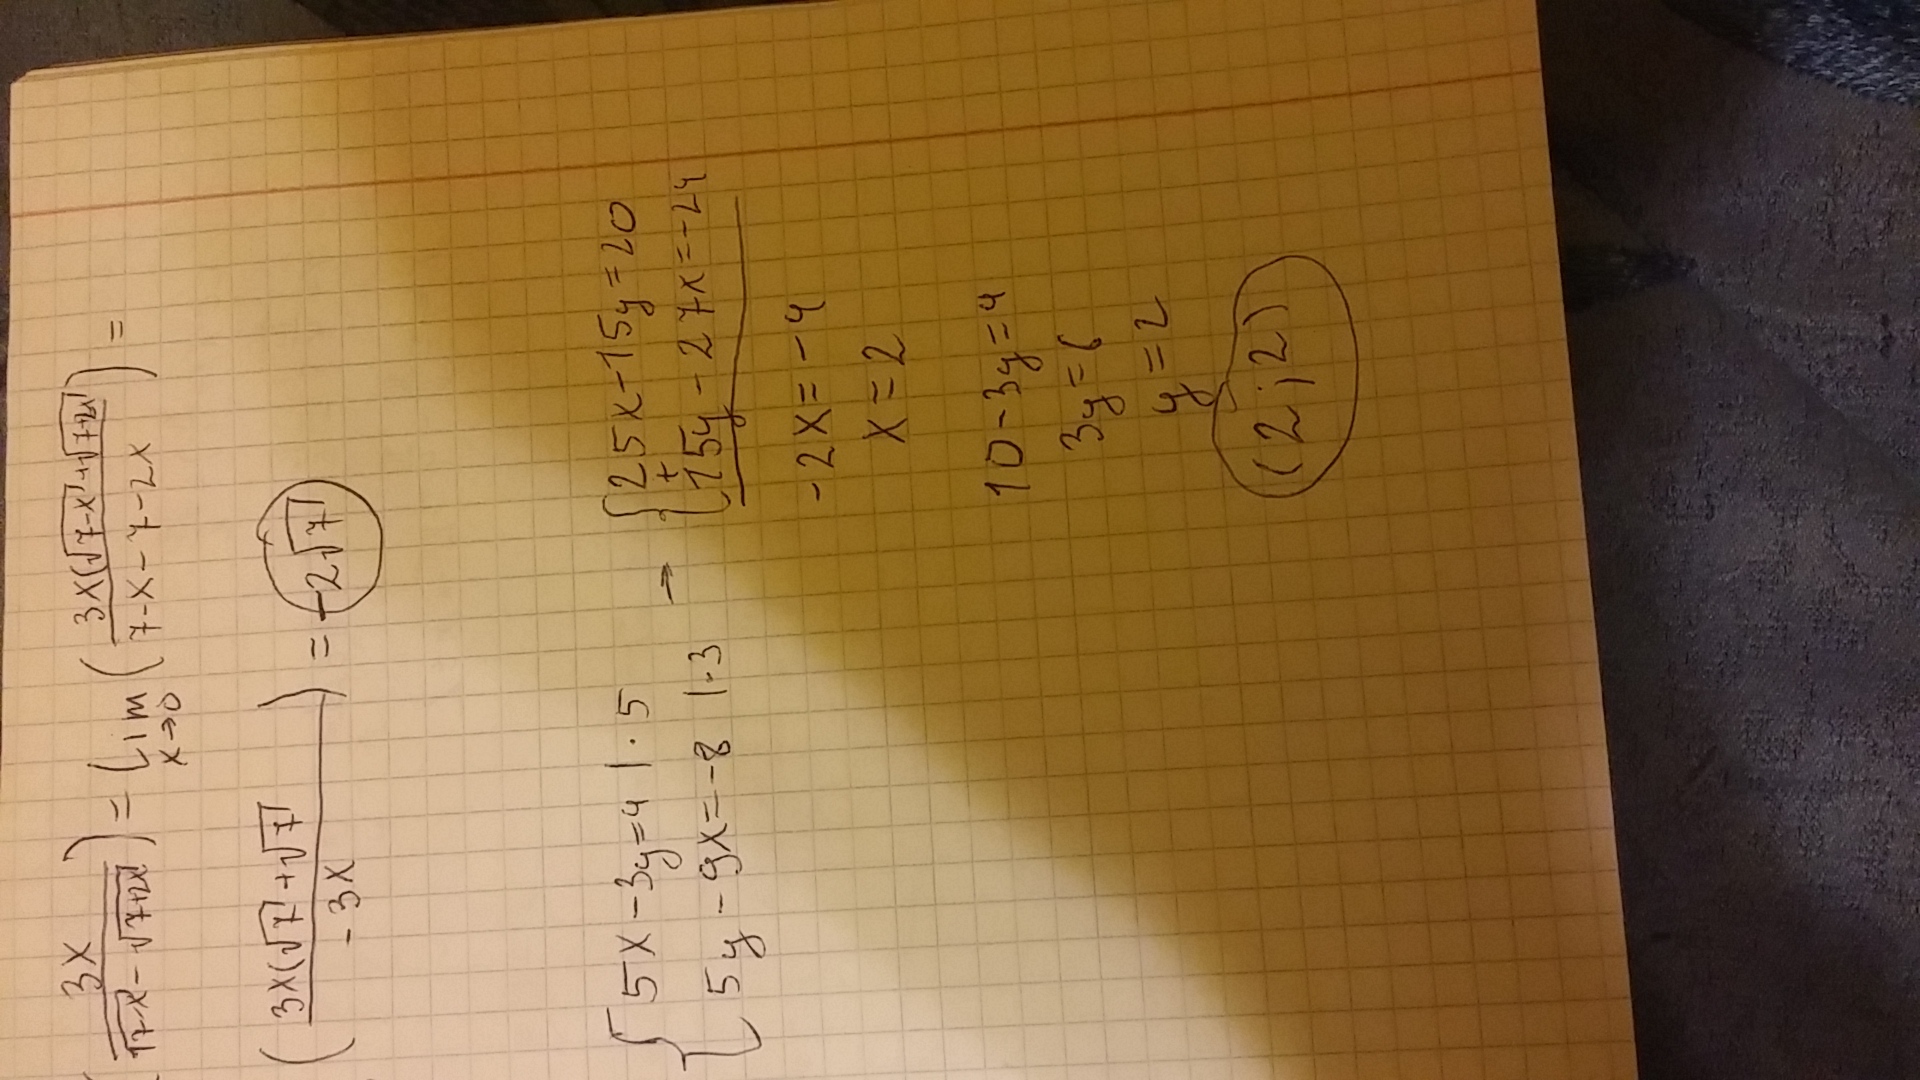 ( 3x / (√(7-x) - √(7+2x)) ) = lim x→0 ( 3x(√(7-x) + √(7+2x)) / 7-x-7-2x ) =
( 3x(√7 + √7 / -3x ) = -2√7
{ 5x - 3y = 4 | · 5
5y - 9x = -8 | · 3
→
{ 25x - 15y = 20
+
{ 15y - 27x = -24
-2x = -4
x = 2
10 - 3y = 4
3y = 6
y = 2
(2;2)